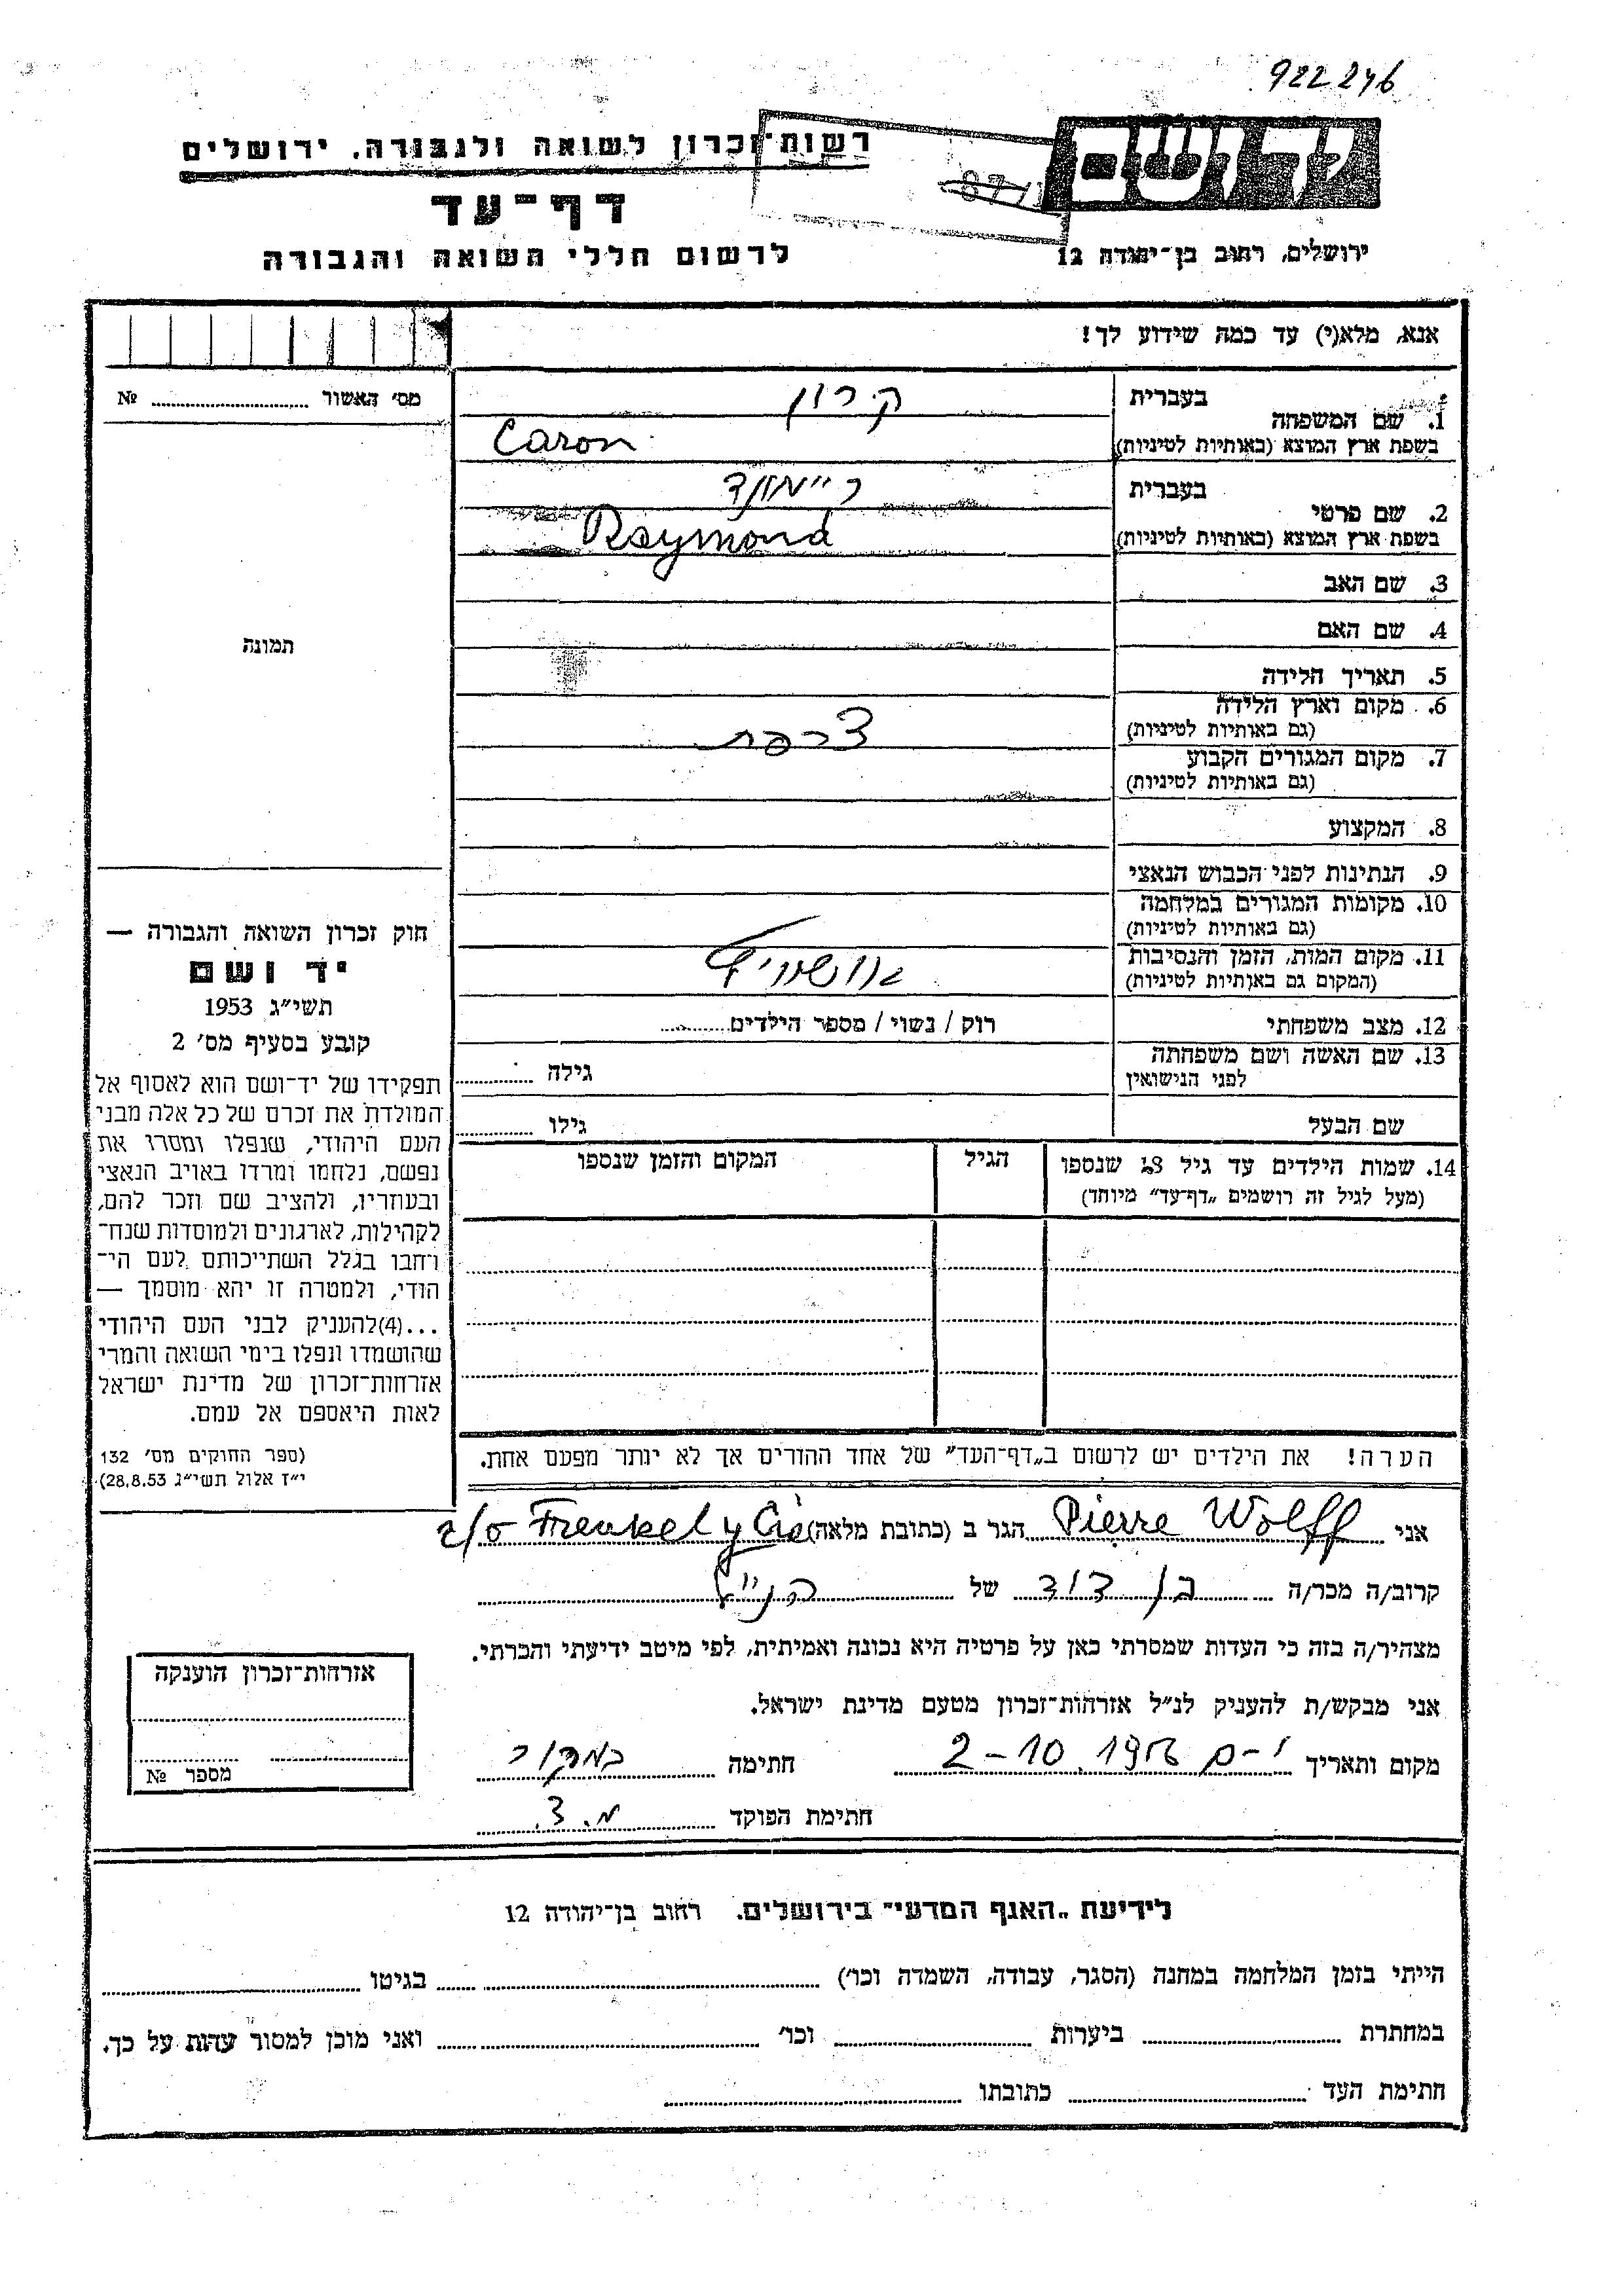 922246
רשות־זכרון לשואה ולגבורה, ירושלים
יד ושם
דף־עד
ירושלים, רחוב בן־יהודה 12
לרשום חללי השואה והגבורה
אנא, מלא(י) עד כמה שידוע לך!
מס׳ האשור № 
1. שם המשפחה
בעברית קרון
בשפת ארץ המוצא (באותיות לטיניות) Caron
2. שם פרטי
בעברית ריימונד
בשפת ארץ המוצא (באותיות לטיניות) Raymond
3. שם האב
4. שם האם
תמונה
5. תאריך הלידה
6. מקום וארץ הלידה
(גם באותיות לטיניות) צרפת
7. מקום המגורים הקבוע
(גם באותיות לטיניות)
8. המקצוע
9. הנתינות לפני הכבוש הנאצי
10. מקומות המגורים במלחמה
(גם באותיות לטיניות)
11. מקום המות, הזמן והנסיבות
(המקום גם באותיות לטיניות) אושוויץ
12. מצב משפחתי רוק / נשוי / מספר הילדים
13. שם האשה ושם משפחתה
לפני הנישואין גילה
שם הבעל גילו
14. שמות הילדים עד גיל 18 שנספו הגיל המקום והזמן שנספו
(מעל לגיל זה רושמים „דף־עד״ מיוחד)
חוק זכרון השואה והגבורה —
יד ושם
תשי״ג 1953
קובע בסעיף מס׳ 2
תפקידו של יד־ושם הוא לאסוף אל
המולדת את זכרם של כל אלה מבני
העם היהודי, שנפלו ומסרו את
נפשם, נלחמו ומרדו באויב הנאצי
ובעוזריו, ולהציב שם וזכר להם,
לקהילות, לארגונים ולמוסדות שנח־
רבו בגלל השתייכותם לעם הי־
הודי, ולמטרה זו יהא מוסמך —
...(4)להעניק לבני העם היהודי
שהושמדו ונפלו בימי השואה והמרי
אזרחות־זכרון של מדינת ישראל
לאות היאספם אל עמם.
(ספר החוקים מס׳ 132
י״ז אלול תשי״ג 28.8.53)
הערה! את הילדים יש לרשום ב„דף־העד״ של אחד ההורים אך לא יותר מפעם אחת.
אני Pierre Wolff הגר ב (כתובת מלאה) c/o Frenkel y Cie
קרוב/ה מכר/ה בן דוד של הנ״ל
מצהיר/ה בזה כי העדות שמסרתי כאן על פרטיה היא נכונה ואמיתית, לפי מיטב ידיעתי והכרתי.
אני מבקש/ת להעניק לנ״ל אזרחות־זכרון מטעם מדינת ישראל.
מקום ותאריך י-ם 2-10.1956 חתימה במקור
חתימת הפוקד מ. צ.
אזרחות־זכרון הוענקה
מספר №
לידיעת „האגף המדעי״ בירושלים. רחוב בן־יהודה 12
הייתי בזמן המלחמה במחנה (הסגר, עבודה, השמדה וכו׳) בגיטו
במחתרת ביערות וכו׳ ואני מוכן למסור עדות על כך.
חתימת העד כתובתו